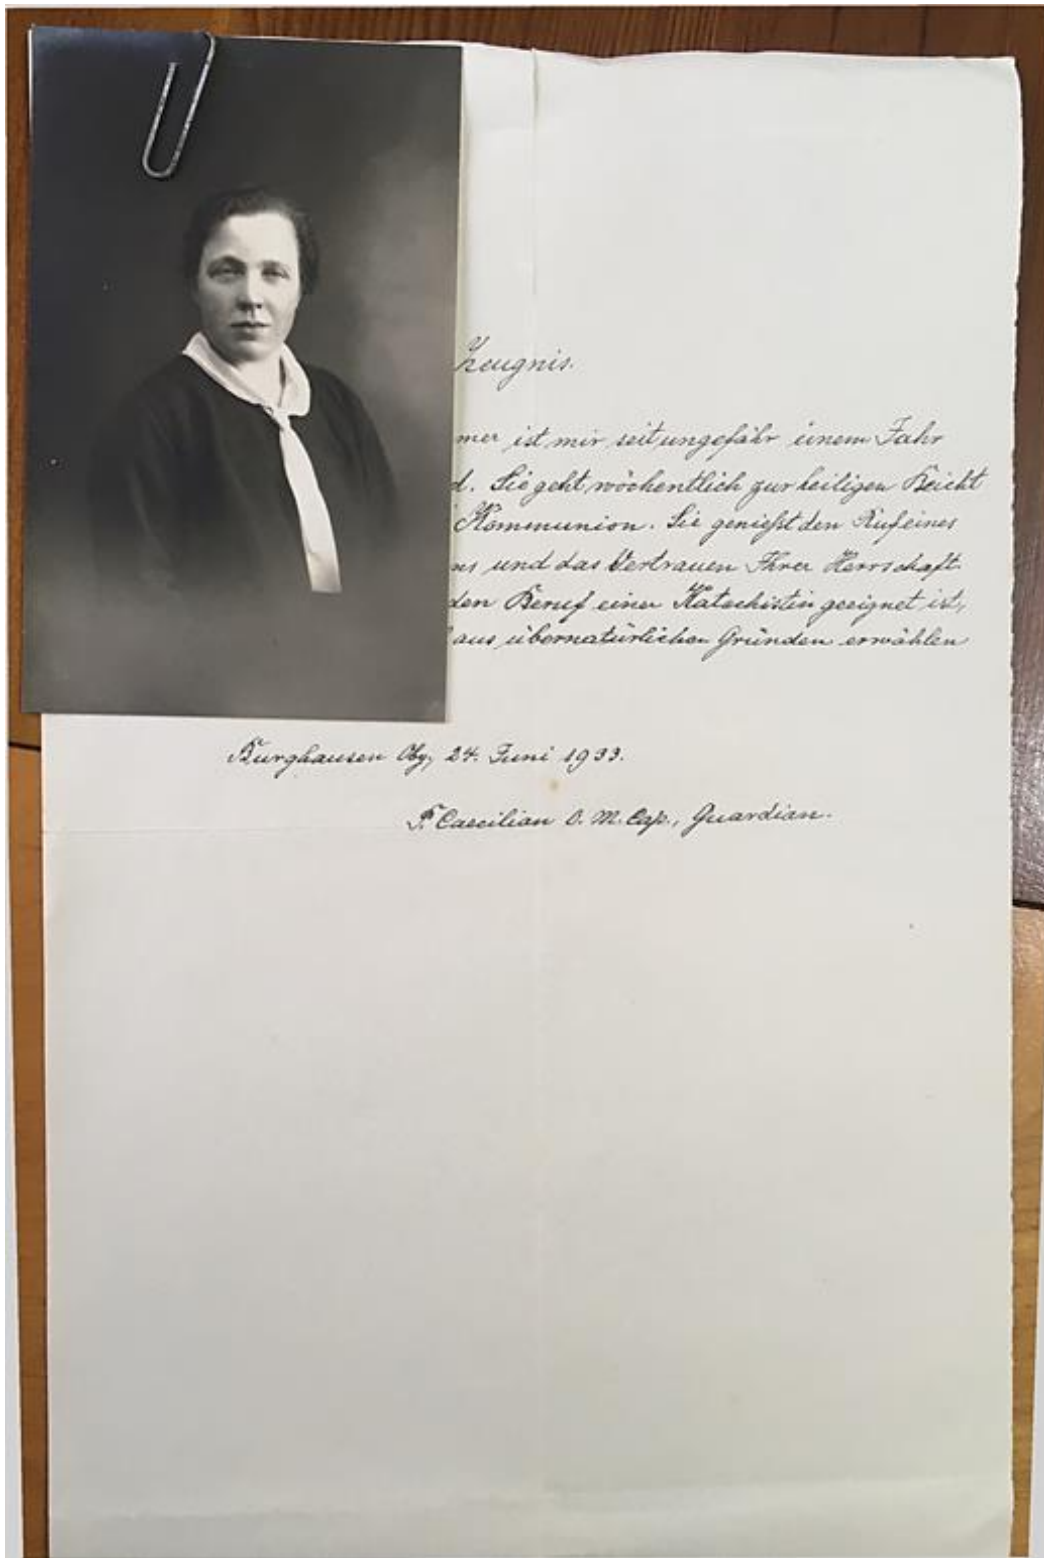 Zeugnis.
mer ist mir seit ungefähr einem Jahr
d. Sie geht wöchentlich zur heiligen Beicht
Kommunion. Sie genießt den Ruf eines
ns und das Vertrauen Ihrer Herrschaft.
den Beruf einer Katechistin geeignet ist,
aus übernatürlichen Gründen erwählen
Burghausen Oby, 24. Juni 1933.
P. Caecilian O. M. Cap., Guardian.